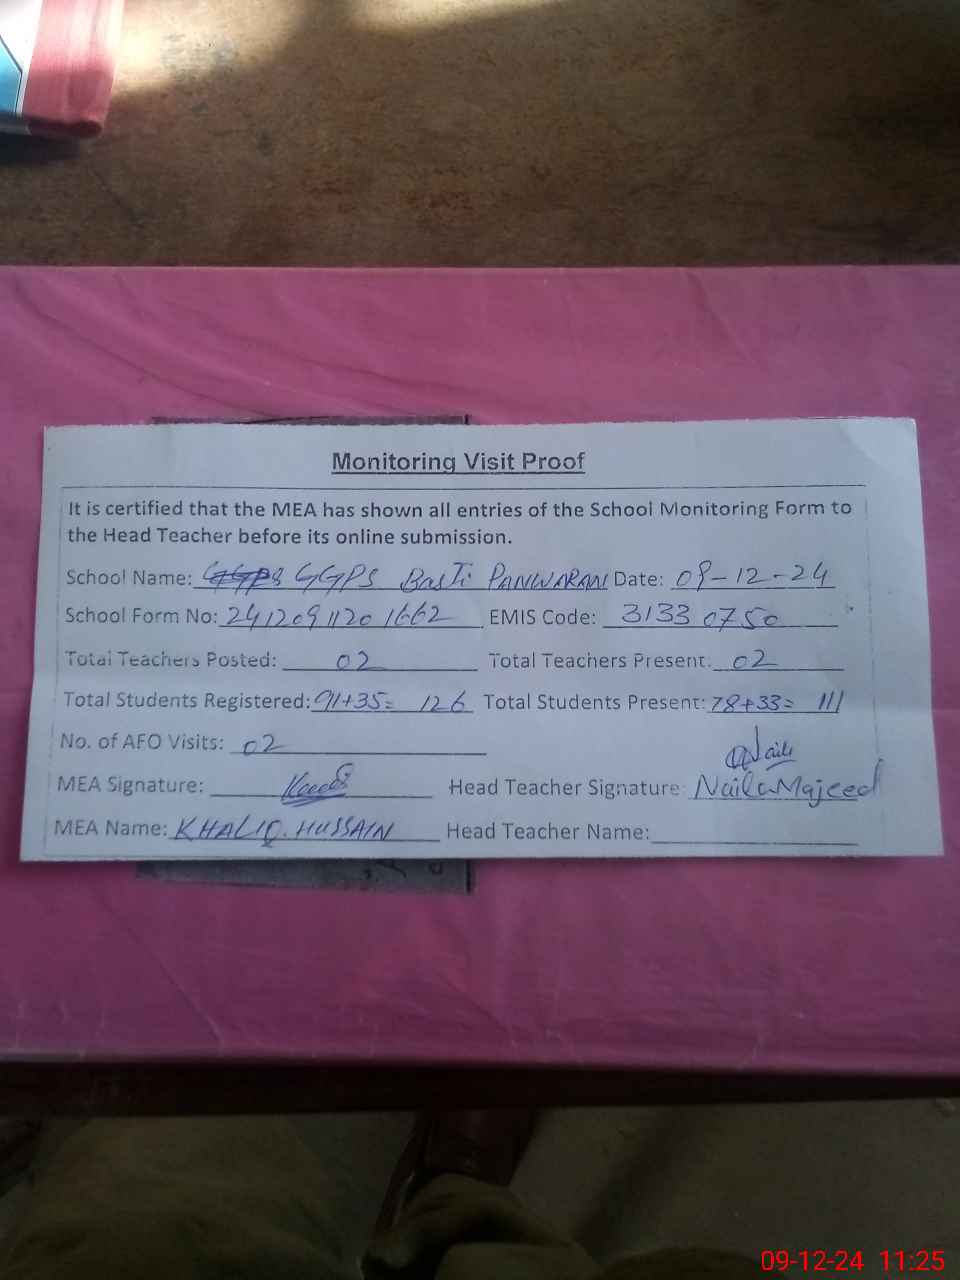 Monitoring Visit Proof
It is certified that the MEA has shown all entries of the School Monitoring Form to
the Head Teacher before its online submission.
School Name: GGPS Basti PANWARAN Date: 09-12-24
School Form No: 2412091120 1662 EMIS Code: 3133 0750
Total Teachers Posted: 02 Total Teachers Present: 02
Total Students Registered: 91+35= 126 Total Students Present: 78+33= 111
No. of AFO Visits: 02
MEA Signature: Head Teacher Signature: Naila Majeed
MEA Name: KHALIQ. HUSSAIN Head Teacher Name:
09-12-24 11:25